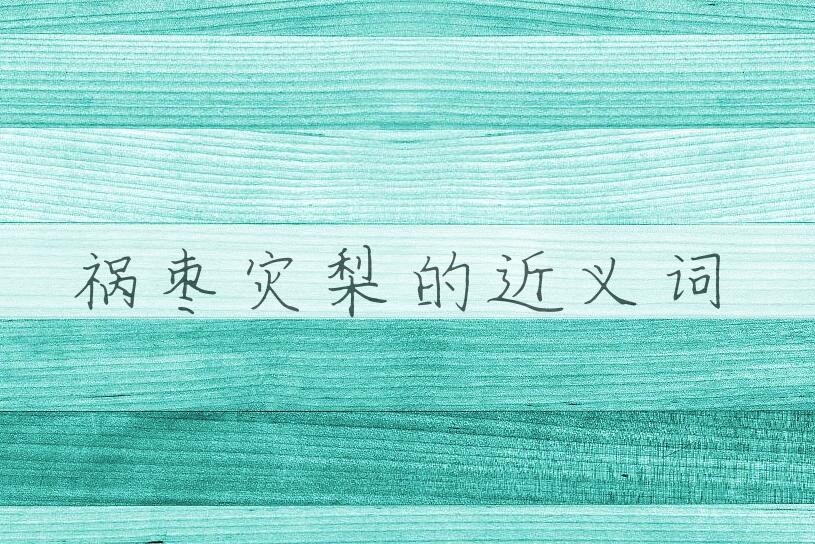 祸枣灾梨的近义词